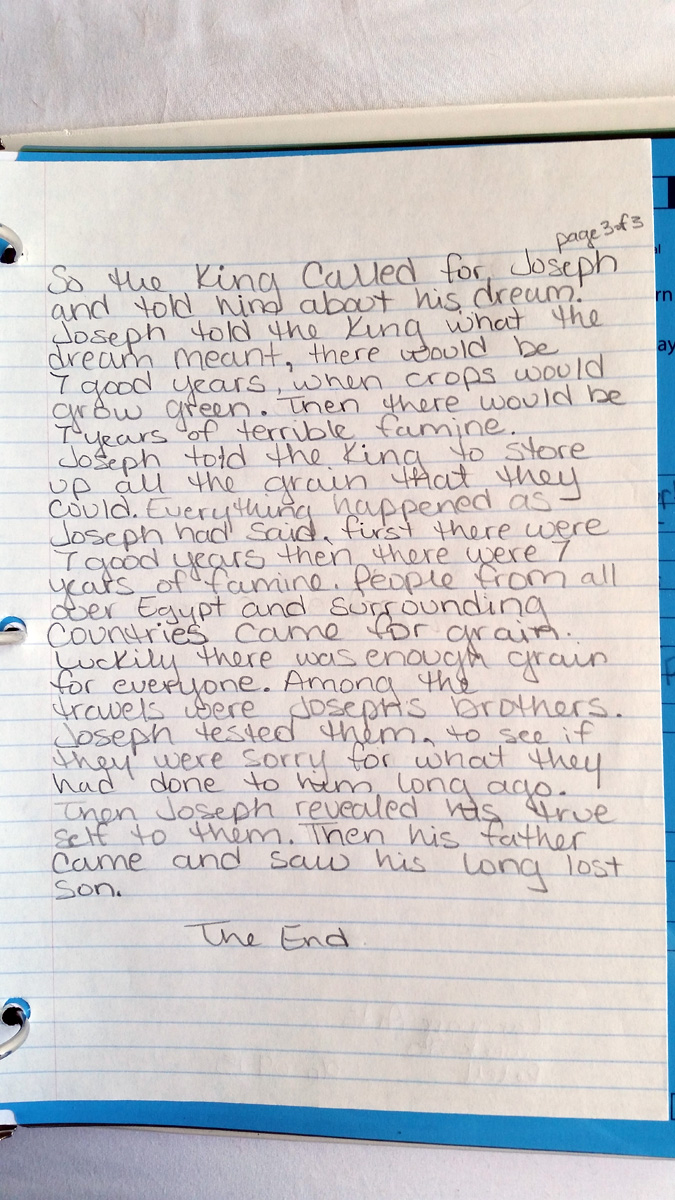 page 3 of 3
So the King Called for Joseph
and told him about his dream.
Joseph told the King what the
dream meant, there would be
7 good years, when crops would
grow green. Then there would be
7 years of terrible famine.
Joseph told the King to store
up all the grain that they
could. Everything happened as
Joseph had said, first there were
7 good years then there were 7
years of famine. People from all
over Egypt and surrounding
Countries came for grain.
Luckily there was enough grain
for everyone. Among the
travels were Joseph's brothers.
Joseph tested them, to see if
they were sorry for what they
had done to him long ago.
Then Joseph revealed his true
self to them. Then his father
came and saw his long lost
son.
The End